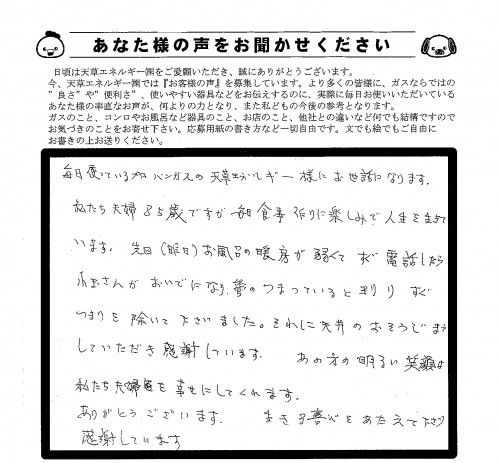 あなた様の声をお聞かせください
日頃は天草エネルギー㈱をご愛顧いただき、誠にありがとうございます。
今、天草エネルギー㈱では『お客様の声』を募集しています。より多くの皆様に、ガスならではの
”良さ”や”便利さ”、使いやすい器具などをお伝えするのに、実際に毎日お使いいただいている
あなた様の率直なお声が、何よりの力となり、また私どもの今後の参考となります。
ガスのこと、コンロやお風呂など器具のこと、お店のこと、他社との違いなど何でも結構ですので
お気づきのことをお寄せ下さい。応募用紙の書き方など一切自由です。文でも絵でもご自由に
お書きの上お送りください。
毎日使っているプロパンガスの天草エネルギー様にお世話になります。
私たち夫婦85歳ですが毎日食事作りに楽しみで人生を生きて
います。先日(昨日)お風呂の暖房が弱くてすぐ電話したら
さんがおいでになり、管のつまっていると判りすぐ
つまりを除いて下さいました。それに天井のおそうじまで
していただき感謝しています。あの方の明るい笑顔は
私たち夫婦を幸せにしてくれます。
ありがとうございます。まさる喜びをあたえて下さり
感謝しています